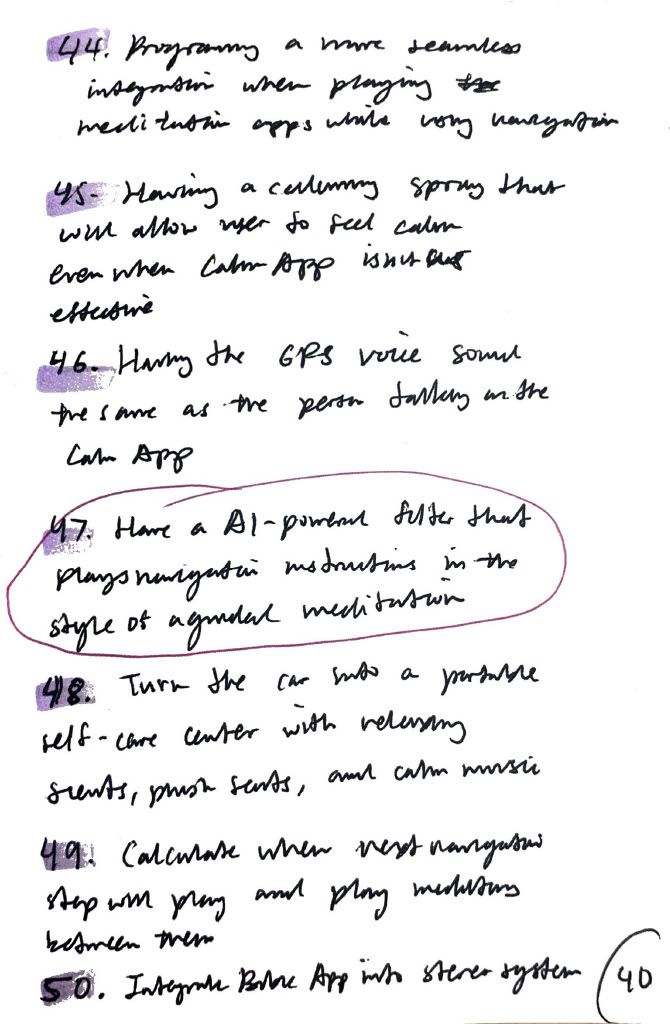 44. Programming a more seamless
integration when playing the
meditation apps while using navigation
45. Having a calming spray that
will allow user to feel calm
even when Calm App isn't
effective
46. Having the GPS voice sound
the same as the person talking on the
Calm App
47. Have a AI-powered filter that
plays navigation instructions in the
style of a guided meditation
48. Turn the car into a portable
self-care center with relaxing
scents, plush seats, and calm music
49. Calculate when next navigation
step will play and play meditations
between them
50. Integrate App into stereo system
40